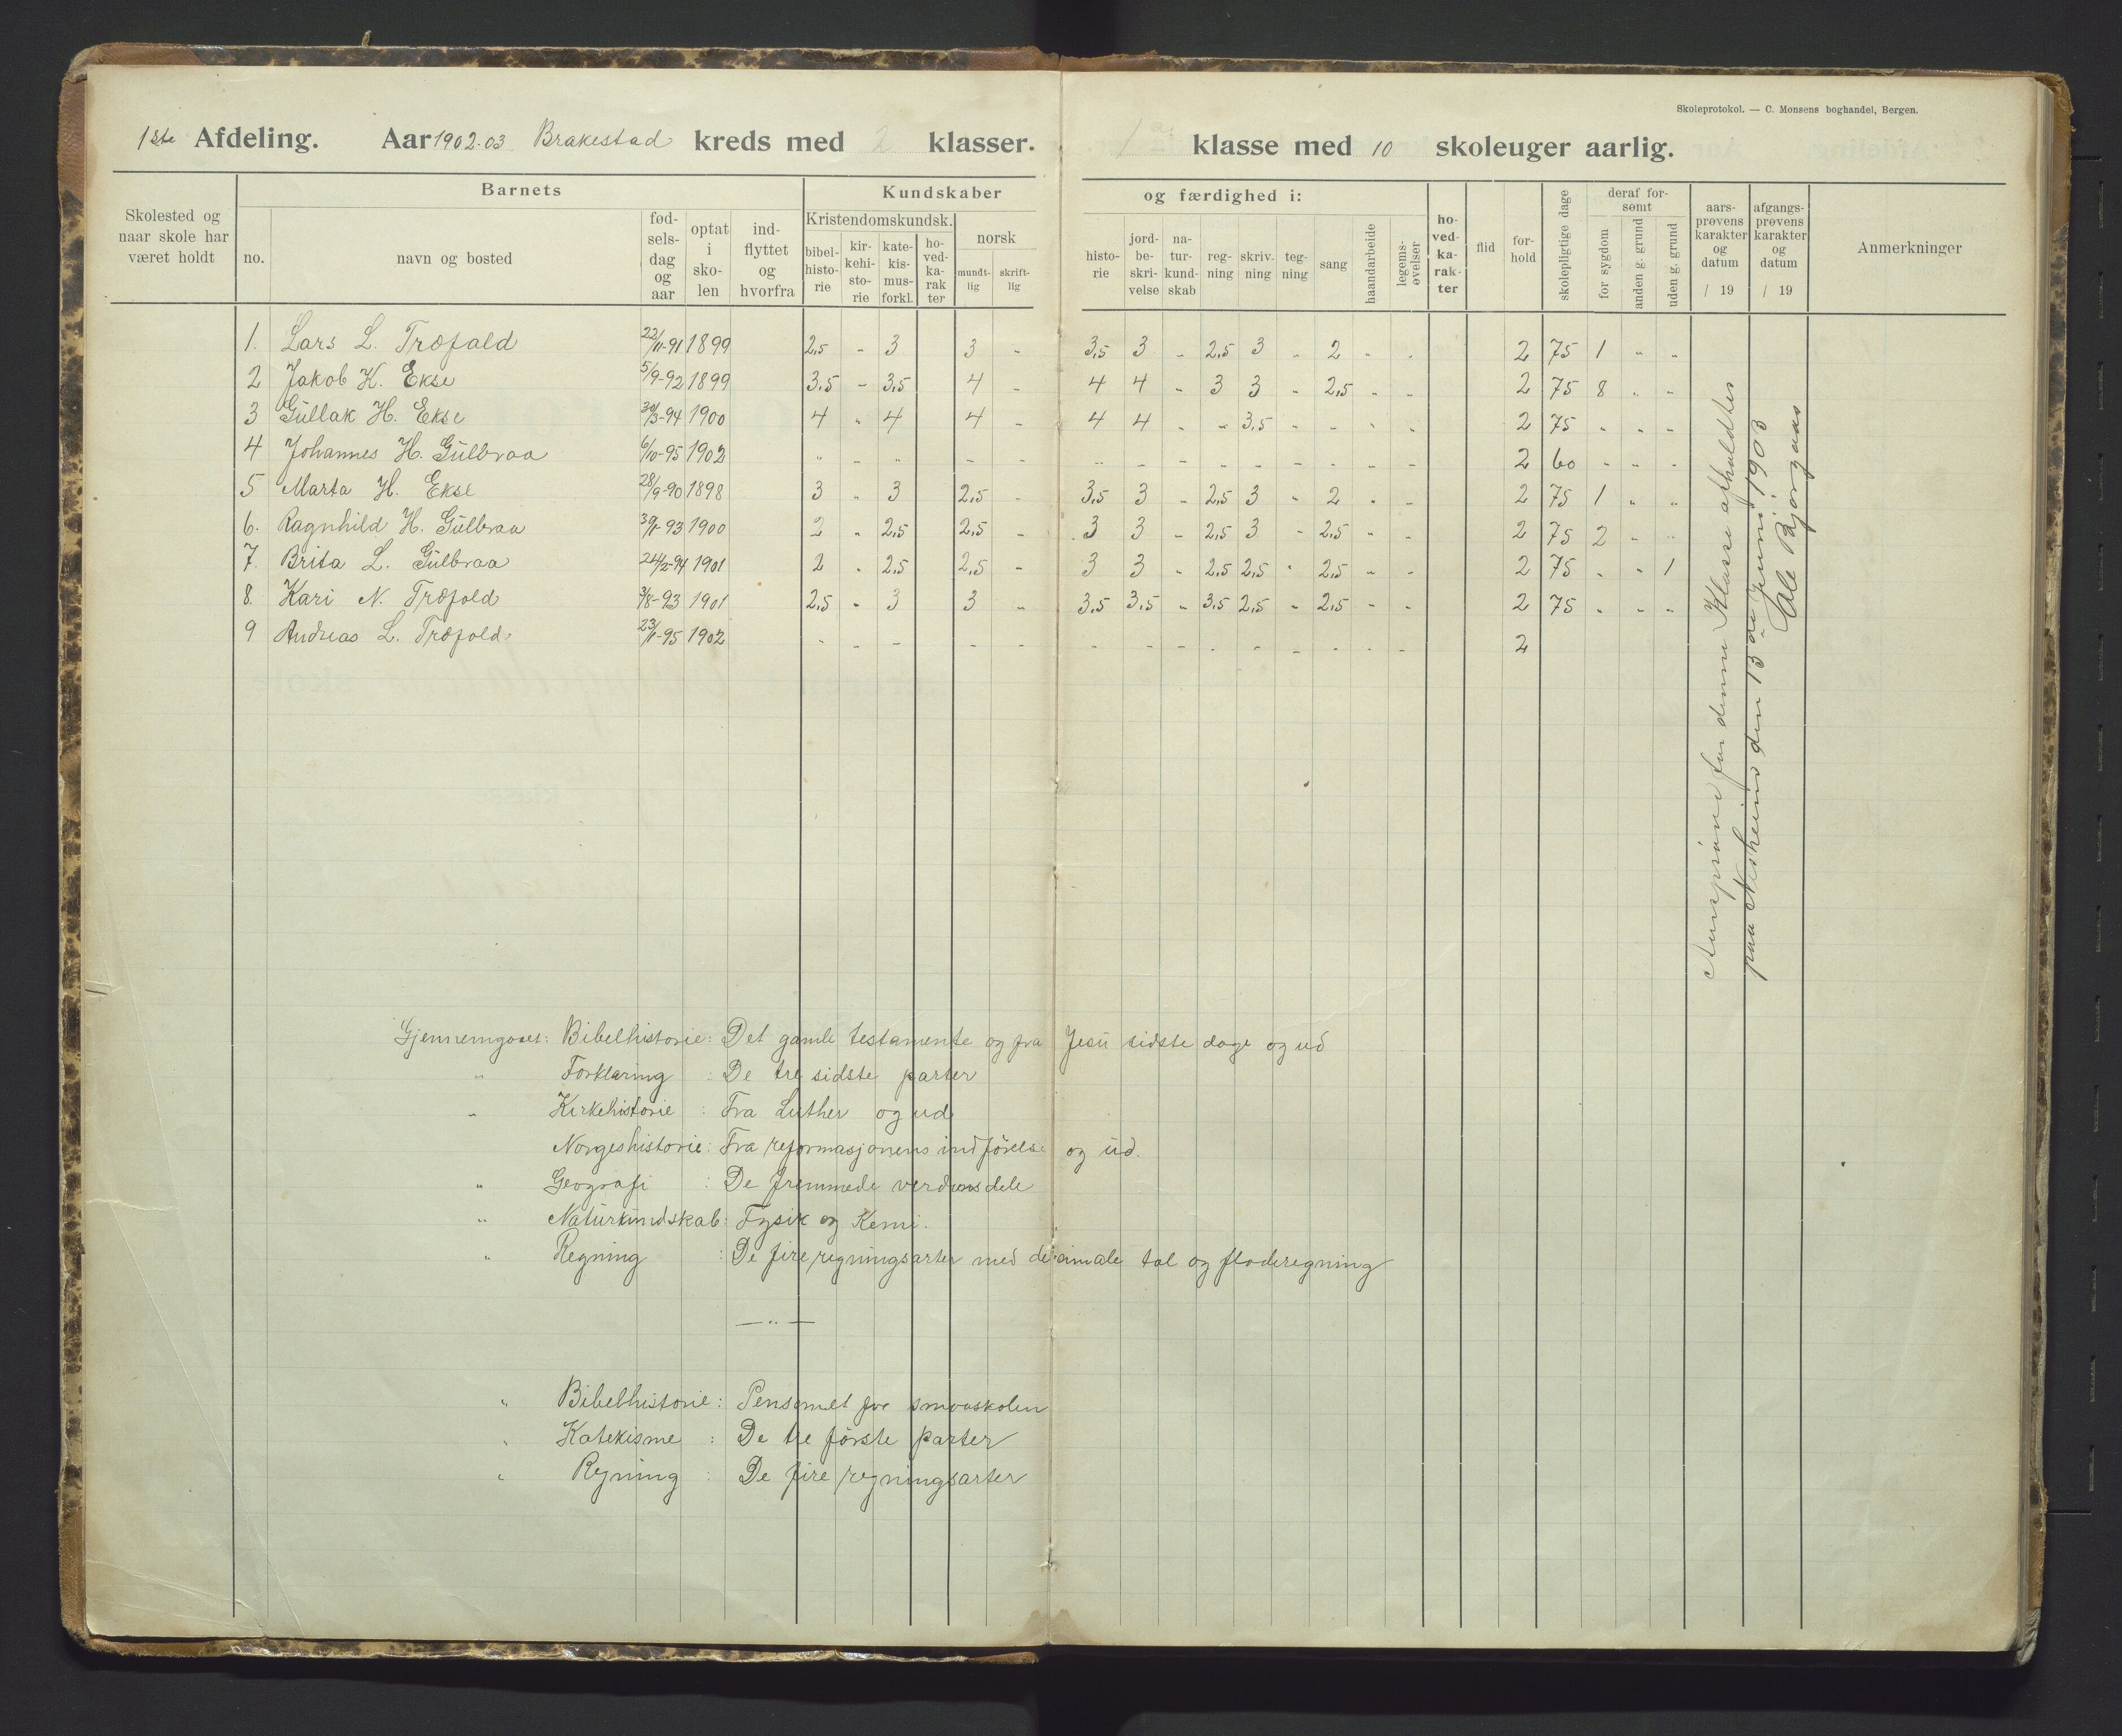 Skoleprotokol. — C. Monsens boghandel, Bergen.
1ste Afdeling. Aar 1902-03 Brakestad kreds med 2 klasser. 1 klasse med 10 skoleuger aarlig.
Skolested og naar skole har været holdt
Barnets
no.
navn og bosted
fød-sels-dag og aar
optat i sko-len
ind-flyttet og hvorfra
Kundskaber og færdighed i:
Kristendomskundsk.
bibel-histo-rie
kir-kehi-sto-rie
kate-kis-mus-forkl.
ho-ved-ka-rak ter
norsk
mundt-lig
skrift-lig
histo-rie
jord-be-skri-velse
na-tur-kund-skab
reg-ning
skriv. ning
teg-ning
sang
haandarbeide
legems-øvelser
ho-ved-ka-rak-ter
flid
for-hold
skolepligtige dage
deraf for-sømt
for sygdom
anden g. grund
uden g. grund
aars-prøvens karakter og datum / 19
afgangs-prøvens karakter og datum / 19
Anmerkninger
1. Lars L. Træfald 22/11-91 1899 2,5 - 3 3 - 3,5 3 - 2,5 3 - 2 - - 2 75 1 " "
2 Jakob K. Ekse 5/9-92 1899 3,5 - 3,5 4 - 4 4 - 3 3 - 2,5 - - 2 75 8 " "
3 Gullak H. Ekse 30/3-94 1900 4 " 4 4 - 4 4 - - 3,5 - - - - 2 75 " " "
4 Johannes H. Gülbraa 6/10-95 1902 " " " - - - - - - - - - - - 2 60 " " "
5 Marta H. Ekse 28/9-90 1898 3 " 3 2,5 - 3,5 3 - 2,5 3 " 2 - - 2 75 1 " "
6. Ragnhild H. Gülbraa 93 1900 2 " 2,5 2,5 - 3 3 - 2,5 3 - 2,5 - - 2 75 2 " "
7. Brita L. Gülbraa 24/2-94 1901 2 " 2,5 2,5 - 3 3 - 2,5 2,5 " 2,5 - - 2 75 " " 1
8. Kari N. Træfald 3/8-93 1901 2,5 - 3 3 - 3,5 3,5 - 3,5 2,5 - 2,5 - - 2 75 " " "
9 Andreas L. Træfald 95 1902 - - - - - - - - - - - - - - 2
Aarsprøve for denne Klasse afholdtes
paa Nesheim den 13de Juni 1903
Ole Bjørgaas
Gjennemgaaet: Bibelhistorie: Det gamle testamente og fra Jesu sidste dage og ud
" Forklaring : De tre sidste parter
" Kirkehistorie : Fra Luther og ud
Norgeshistorie: Fra reformasjonens indførelse og ud.
" Geografi : De fremmede verdensdele
" Naturkundskab: Fysik og Kemi.
" Regning : De fire regningsarter med desimale tal og fladeregning
— " —
" Bibelhistorie: Pensumet for smaaskolen
" Katekisme : De tre første parter
" Regning : De fire regningsarter